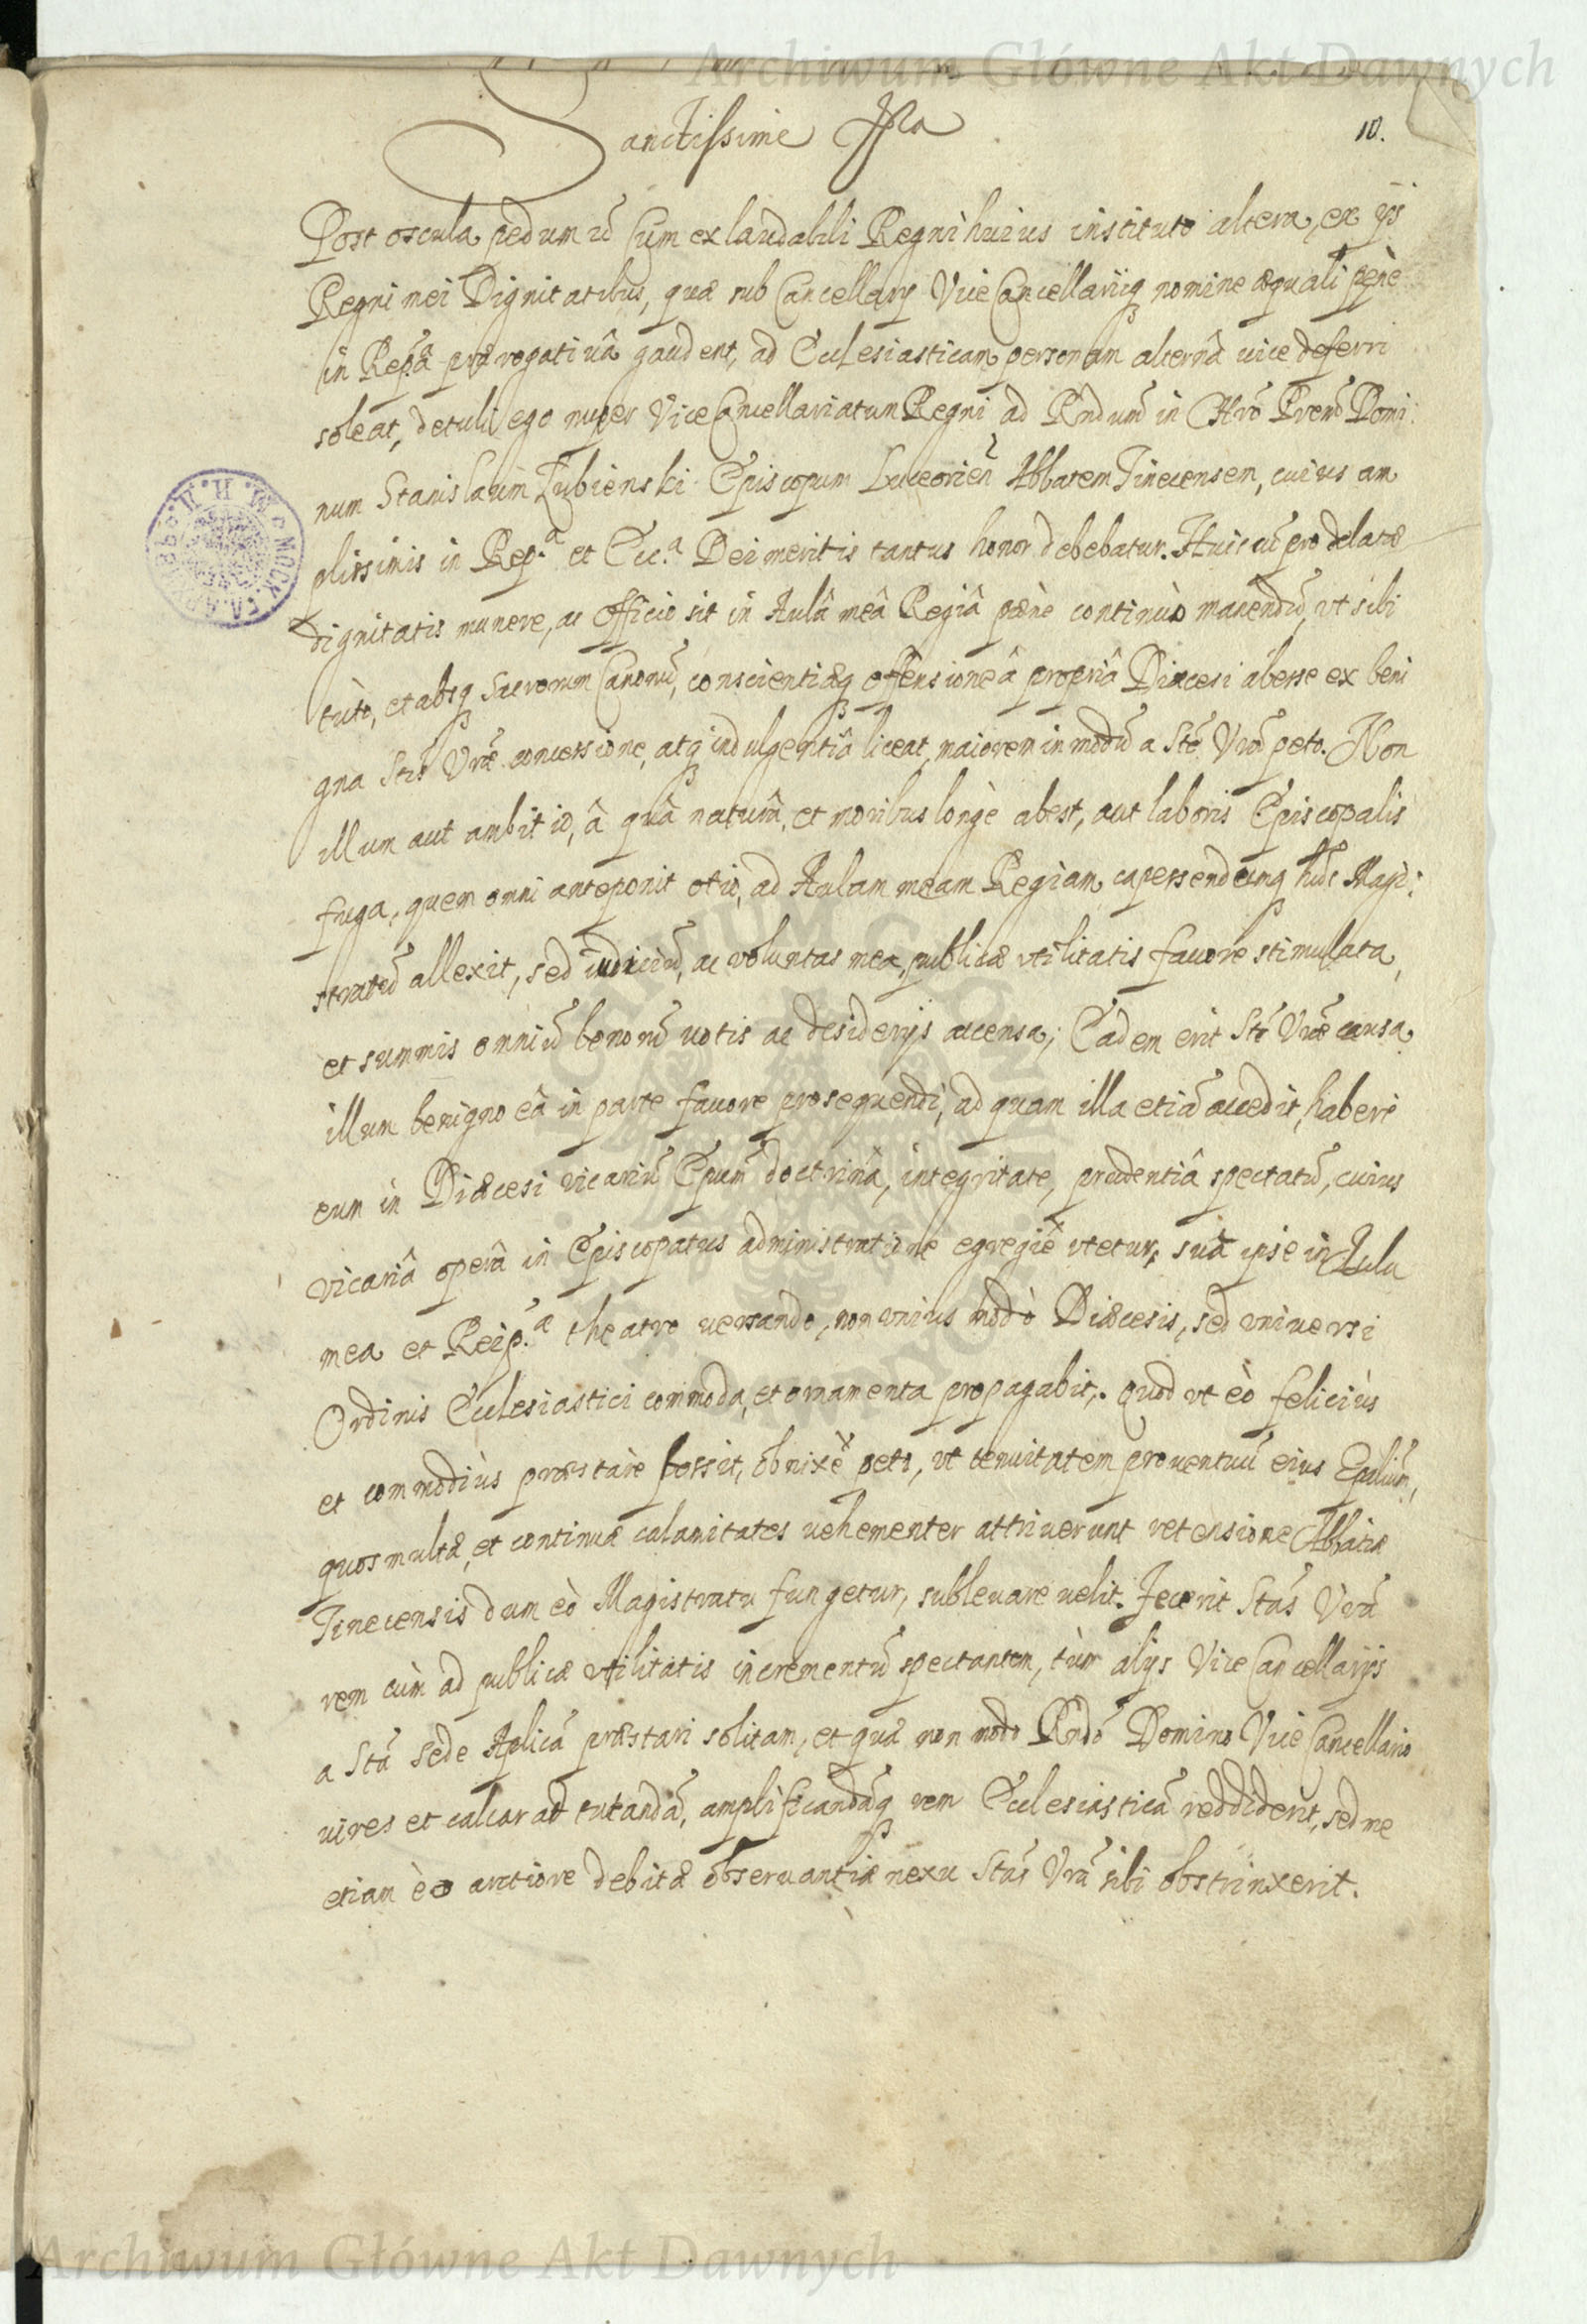 Archiwum Główne Akt Dawnych
Sanctissime Pr̃a
10.
Post oscula pedum etc̃ Cum ex laudabili Regni huius instituto altera, ex ijs
Regni mei Dignitatibus, quæ sub Cancellarij ViceCancellariiq nomine æquali penè
in Rep.ca prærogativâ gaudent, ad Ecclesiasticam personam alternâ vice deferri
soleat, detuli ego nuper ViceCancellariatum Regni ad Rñdum in Chrõ Prem̃ Domi:
num Stanislaum Lubienski Episcopum Luceorieñ Abbatem Tinecensem, cuius am
plissimis in Rep.ca et Ecc.a Dei meritis tantus honor debebatur. Huic cũ pro delatæ
dignitatis munere, ac officio sit in Aulâ meâ Regiâ pænè continùo manendũ, vt sibi
tùto, et absq Sacrorum Canonũ, conscientiæq offensione â propriâ Diæcesi abesse ex beni
gna Stis Vræ concessione, atq indulgentiâ liceat, maiorem in modũ a Ste Vrã peto. Non
illum aut ambitio, â quâ naturâ, et moribus longè abest, aut laboris Episcopalis
fuga, quem omni anteponit otio, ad Aulam meam Regiam, capessendumq hũc Magi:
stratũ allexit, sed iudiciũ, ac voluntas mea, publicæ vtilitatis favore stimulata,
et summis omniũ bonorũ votis ac desiderijs accensa; Eadem erit Sti Vræ causa
illum benigno eâ in parte favore prosequendi, ad quam illa etiã accedit, habere
eum in Diæcesi vicariũ Epum̃ doctrinâ, integritate, prudentiâ spectatũ, cuius
vicariâ operâ in Episcopatus administratione egregiè vtetur, suâ ipse in Aula
mea et Reip.cæ theatro versando, non vnius modò Diæcesis, sed vniversi
Ordinis Ecclesiastici commoda, et ornamenta propagabit. quod vt eò feliciùs
et commodiùs præstare possit, obnixè peto, vt tenuitatem proventuũ eius Epaliũm,
quos multæ, et continuæ calamitates vehementer attriverunt retensione Abbatiæ
Tinecensis dum eò Magistratu fungetur, sublevare velit. Fecerit Stas̃ Vrã
rem cùm ad publicæ vtilitatis incrementũ spectantem, tùm alijs ViceCancellarijs
a Stã Sede Aplicã præstari solitam, et quæ non modo Rñdõ Domino ViceCancellario
vires et calcar ad tutandã, amplificandãq rem Ecclesiasticã reddiderit, sed me
etiam èo arctiore debitæ observantiæ nexu Stas̃ Vrã sibi obstrinxerit.
Archiwum Główne Akt Dawnych